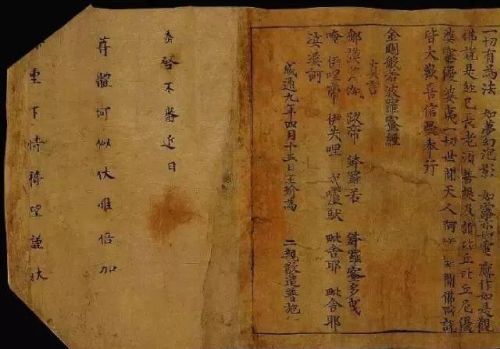 一切有為法 如夢幻泡影 如露亦如電 應作如是觀
佛說是經已長老須菩提及諸比丘比丘尼優
婆塞優婆夷一切世間天人阿修羅聞佛所說
皆大歡喜信受奉行
金剛般若波羅蜜經
真言
那謨 帝 鉢羅若 鉢羅蜜多曳
唵 伊哩帝 伊失哩 戍嚧馱 毗舍耶 毗舍耶
娑婆訶
咸通九年四月十五日王玠為 二親敬造普施
啓不審近日
尊體何似伏惟倍加
重下情禱望謹狀